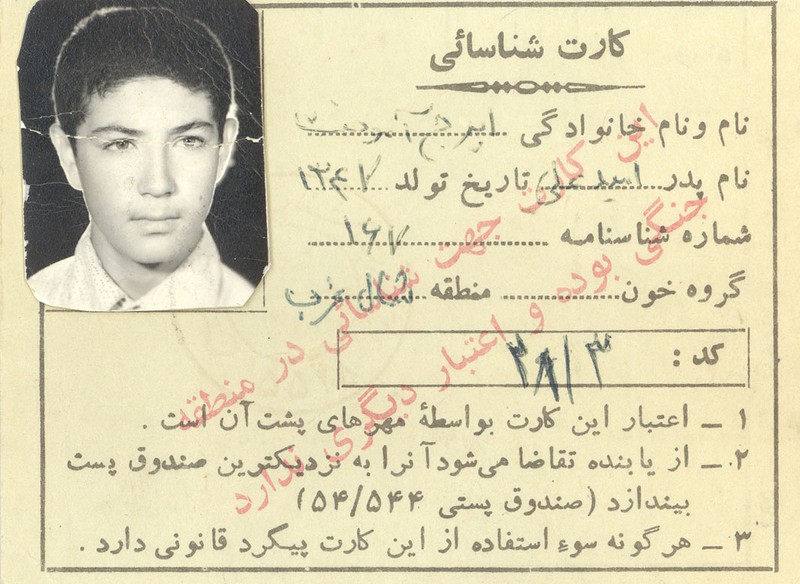 کارت شناسائی
نام ونام خانوادگی ایرج
نام پدر تاریخ تولد ۱۳۴۷
شماره شناسنامه ۱۶۷
گروه خون منطقه شمال غرب
کد : ۲۸/۳
۱ ـ اعتبار این کارت بواسطهٔ مهرهای پشت آن است .
۲ ـ از یابنده تقاضا می‌شود آنرا به نزدیکترین صندوق پست
بیندازد (صندوق پستی ۵۴/۵۴۴)
۳ ـ هرگونه سوء استفاده از این کارت پیگرد قانونی دارد .
این کارت جهت شناسائی در منطقه
جنگی بوده و اعتبار دیگری ندارد